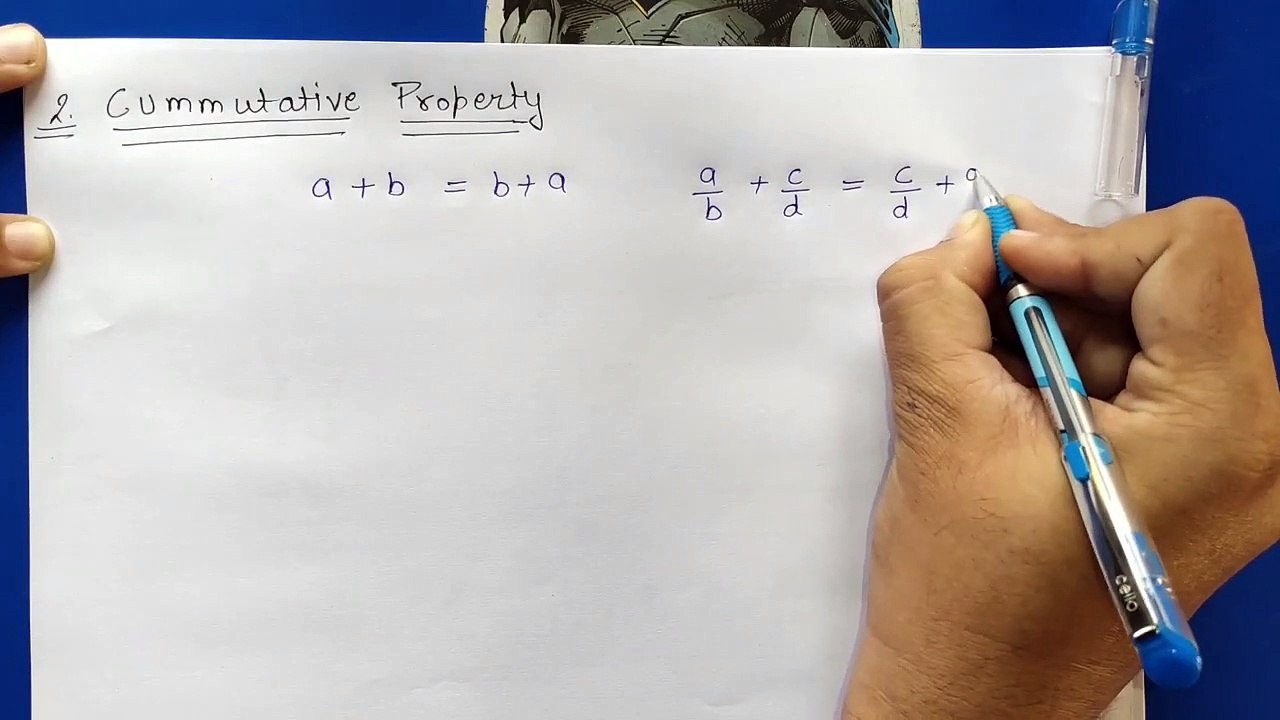 2. Cummutative Property
a + b = b + a
a/b + c/d = c/d + a
cello